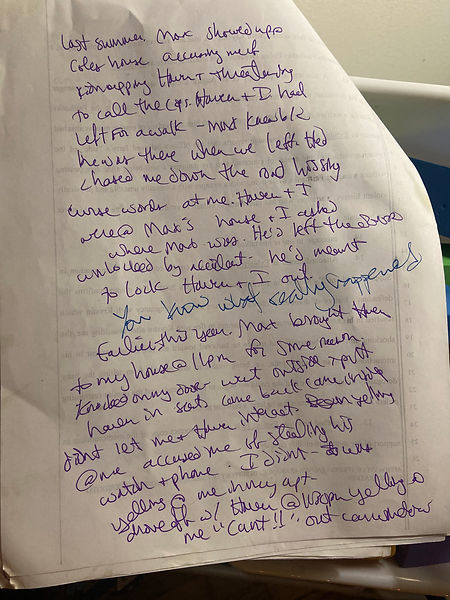 last summer Max showed up @
Coles house accusing me of
kidnapping Haven + threatening
to call the cops. Haven + I had
left for a walk - Max knew b/c
he was there when we left. He'd
chased me down the road hissing
curse words at me. Haven + I
were @ Max's house + I asked
where Max was. He'd left the doors
unlocked by accident. he's meant
to lock Haven + I out.
You know what really happened
Earlier this year. Max brought Haven
to my house @ 11pm for some reason.
Knocked on my door went outside + put
haven in seats came back came inside
didnt let me + Haven interact. yelling
@ me accused me of stealing his
watch + phone. I didnt - was
yelling @ me in my apt.
drove off w/ Haven @ yelling @
me "Cunt!!" out car window